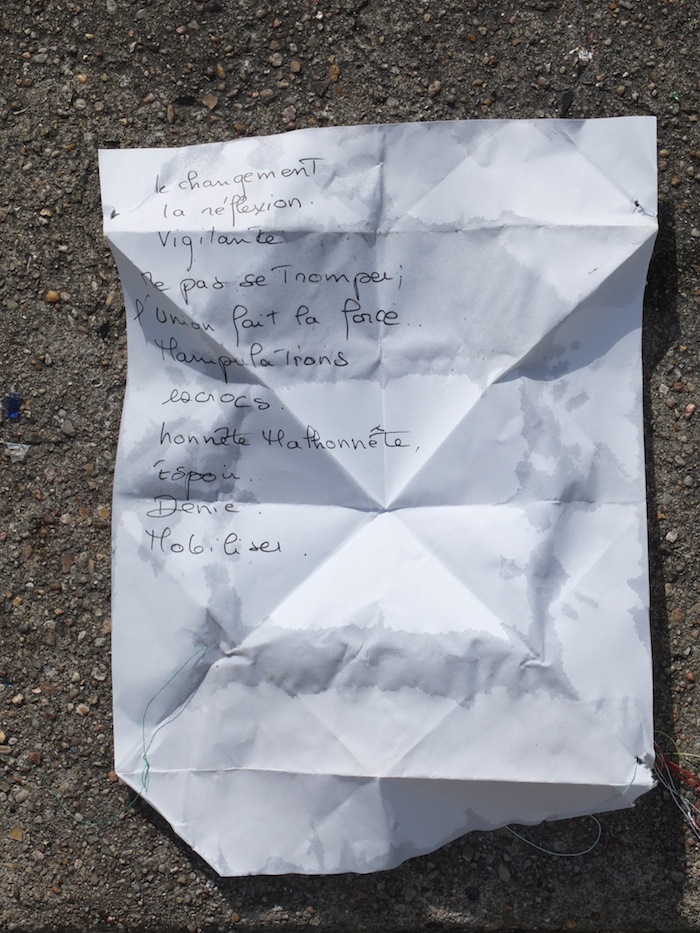 le changement
la réflexion.
Vigilante
Ne pas se Tromper;
l'union fait la force...
Manipulations
escrocs.
honnête Malhonnête,
Espoir.
Denie.
Mobiliser.